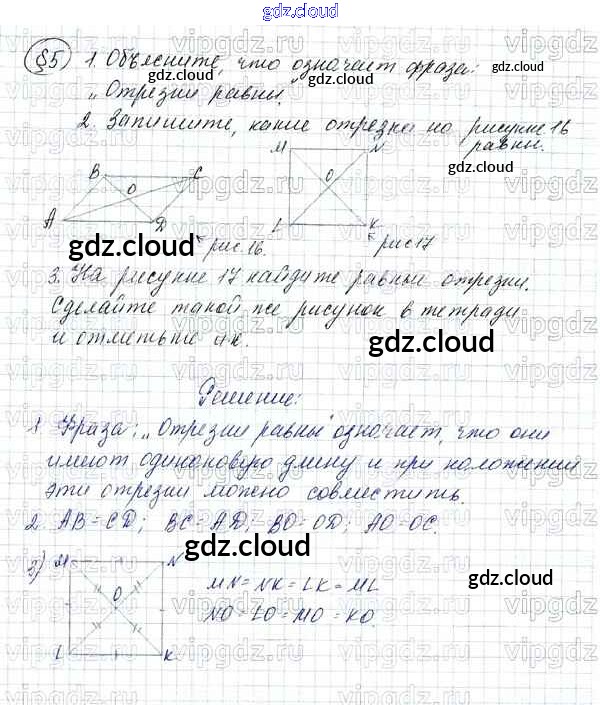 gdz.cloud
gdz.cloud
§5 1. Объясните, что означает фраза:
gdz.cloud gdz.cloud
„Отрезки равны."
2. Запишите, какие отрезки на рисунке 16
равны.
gdz.cloud
B C M N
O O
A D L K
рис. 16. рис 17
gdz.cloud gdz.cloud
3. На рисунке 17 найдите равные отрезки.
Сделайте такой же рисунок в тетради
и отметьте их.
gdz.cloud
Решение:
1 Фраза: „Отрезки равны" означает, что они
имеют одинаковую длину и при наложении
эти отрезки можно совместить.
2. AB = CD; BC = AD; BO = OD; AO = OC.
gdz.cloud
3) M N MN = NK = LK = ML
gdz.cloud
O NO = LO = MO = KO.
L K
gdz.cloud